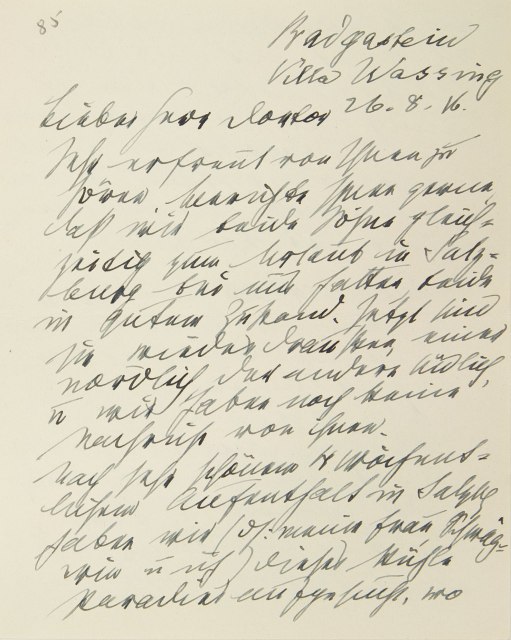 85
Badgastein
Villa Wassing
26. 8. 16.
Lieber Herr Doktor
Sehr erfreut von Ihnen zu
hören berichte Ihnen gerne,
daß wir beide Söhne gleich-
zeitig zum Urlaub in Salz-
burg bei uns hatten, beide
in gutem Zustand. Jetzt sind
sie wieder draußen, einer
nördlich der andere südlich,
u wir haben noch keine
Nachricht von ihnen.
Nach sehr schönem 4 wöchent-
lichem Aufenthalt in Salzbg
haben wir (d.i. meine Frau, Schwäge-
rin u ich) dieses kühle
Paradies aufgesucht, wo